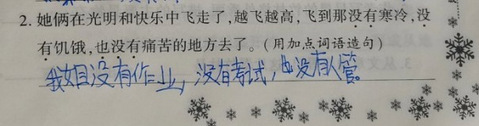 2. 她俩在光明和快乐中飞走了,越飞越高,飞到那没有寒冷,没
有饥饿,也没有痛苦的地方去了。(用加点词语造句)
没有作业,没有考试,也没有人管。